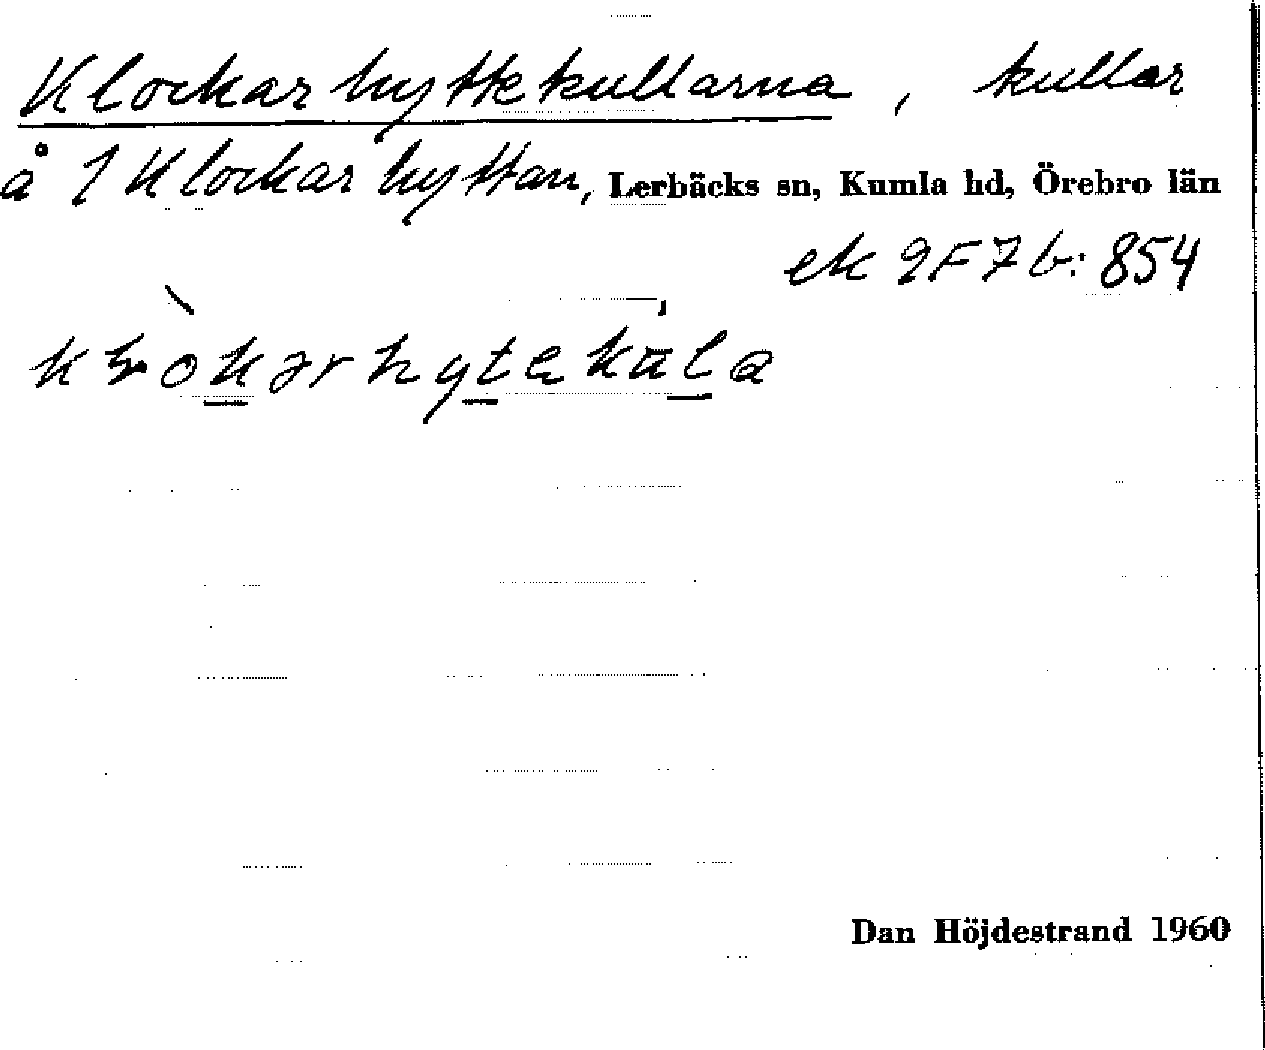 Klockarhyttekullarna, kullar
å 1 Klockarhyttan, Lerbäcks sn, Kumla hd, Örebro län
ek 9F7b: 854
Dan Höjdestrand 1960